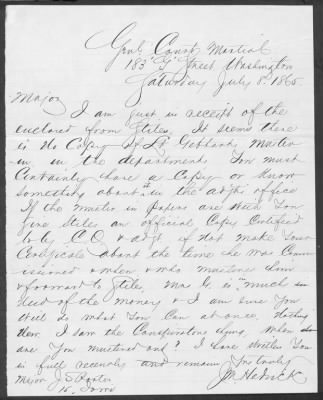 Genl Court Martial
183 "G" Street Washington
Saturday July 8" 1865.
Major
I am just in receipt of the
enclosed from Stiles. It seems there
is no Copy of Lt Gebhart Muster
in, in the department. You must
Certainly have a Copy or know
something about it in the adj's office
If the muster in papers are with You
give Stiles an official Copy Certified
to by C.O. & adjt if not make Your
Certificate about the time he was Comm
issioned & when & who mustered him
& forward to Stiles. Mrs G. is in much
need of the money & I am sure You
will do what You Can at once. Nothing
New. I saw the Conspirators hung. When
are You mustered out? I have written You
in full recently and remain Yrs truly
Major J S Porter JM Hedrick
15. Iowa